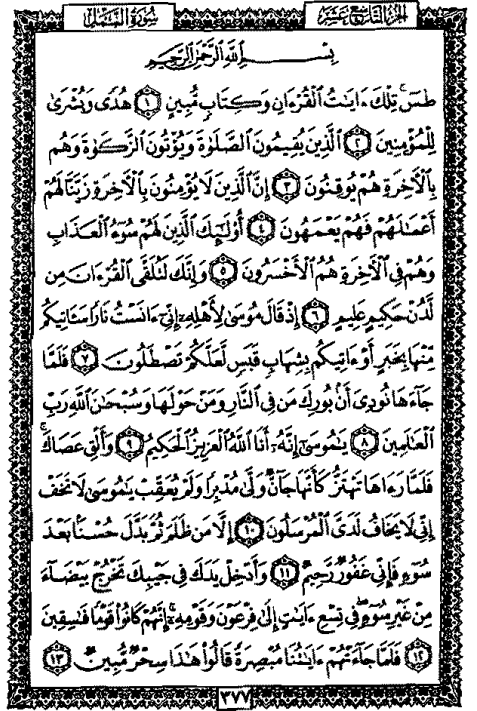 الجزء التاسع عشر
سورة النمل
بِسْمِ اللَّهِ الرَّحْمَٰنِ الرَّحِيمِ
طسٓ ۚ تِلْكَ ءَايَٰتُ ٱلْقُرْءَانِ وَكِتَابٍ مُّبِينٍ ١ هُدًى وَبُشْرَىٰ
لِلْمُؤْمِنِينَ ٢ ٱلَّذِينَ يُقِيمُونَ ٱلصَّلَوٰةَ وَيُؤْتُونَ ٱلزَّكَوٰةَ وَهُم
بِٱلْءَاخِرَةِ هُمْ يُوقِنُونَ ٣ إِنَّ ٱلَّذِينَ لَا يُؤْمِنُونَ بِٱلْءَاخِرَةِ زَيَّنَّا لَهُمْ
أَعْمَٰلَهُمْ فَهُمْ يَعْمَهُونَ ٤ أُو۟لَٰٓئِكَ ٱلَّذِينَ لَهُمْ سُوٓءُ ٱلْعَذَابِ
وَهُمْ فِى ٱلْءَاخِرَةِ هُمُ ٱلْأَخْسَرُونَ ٥ وَإِنَّكَ لَتُلَقَّى ٱلْقُرْءَانَ مِن
لَّدُنْ حَكِيمٍ عَلِيمٍ ٦ إِذْ قَالَ مُوسَىٰ لِأَهْلِهِۦٓ إِنِّىٓ ءَانَسْتُ نَارًا سَـَٔاتِيكُم
مِّنْهَا بِخَبَرٍ أَوْ ءَاتِيكُم بِشِهَابٍ قَبَسٍ لَّعَلَّكُمْ تَصْطَلُونَ ٧ فَلَمَّا
جَآءَهَا نُودِىَ أَنۢ بُورِكَ مَن فِى ٱلنَّارِ وَمَنْ حَوْلَهَا وَسُبْحَٰنَ ٱللَّهِ رَبِّ
ٱلْعَٰلَمِينَ ٨ يَٰمُوسَىٰٓ إِنَّهُۥٓ أَنَا ٱللَّهُ ٱلْعَزِيزُ ٱلْحَكِيمُ ٩ وَأَلْقِ عَصَاكَ ۚ
فَلَمَّا رَءَاهَا تَهْتَزُّ كَأَنَّهَا جَآنٌّ وَلَّىٰ مُدْبِرًا وَلَمْ يُعَقِّبْ ۚ يَٰمُوسَىٰ لَا تَخَفْ
إِنِّى لَا يَخَافُ لَدَىَّ ٱلْمُرْسَلُونَ ١٠ إِلَّا مَن ظَلَمَ ثُمَّ بَدَّلَ حُسْنًۢا بَعْدَ
سُوٓءٍ فَإِنِّى غَفُورٌ رَّحِيمٌ ١١ وَأَدْخِلْ يَدَكَ فِى جَيْبِكَ تَخْرُجْ بَيْضَآءَ
مِنْ غَيْرِ سُوٓءٍ ۖ فِى تِسْعِ ءَايَٰتٍ إِلَىٰ فِرْعَوْنَ وَقَوْمِهِۦٓ ۚ إِنَّهُمْ كَانُوا۟ قَوْمًا فَٰسِقِينَ
١٢ فَلَمَّا جَآءَتْهُمْ ءَايَٰتُنَا مُبْصِرَةً قَالُوا۟ هَٰذَا سِحْرٌ مُّبِينٌ ١٣
٣٧٧